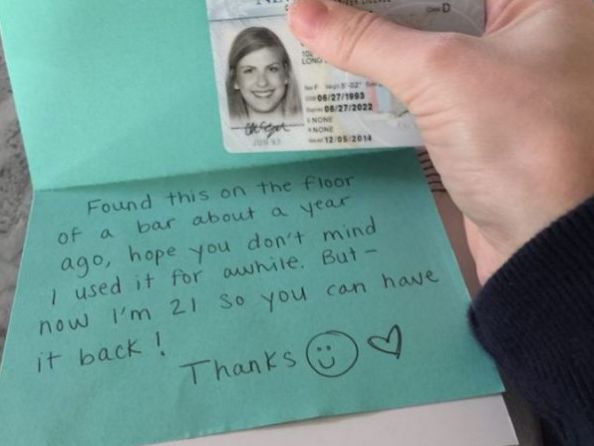 D
F 5'-02"
06/27/1993
06/27/2022
NONE
NONE
12/05/2014
Found this on the floor
of a bar about a year
ago, hope you don't mind
I used it for awhile. But –
now I'm 21 so you can have
it back!
Thanks